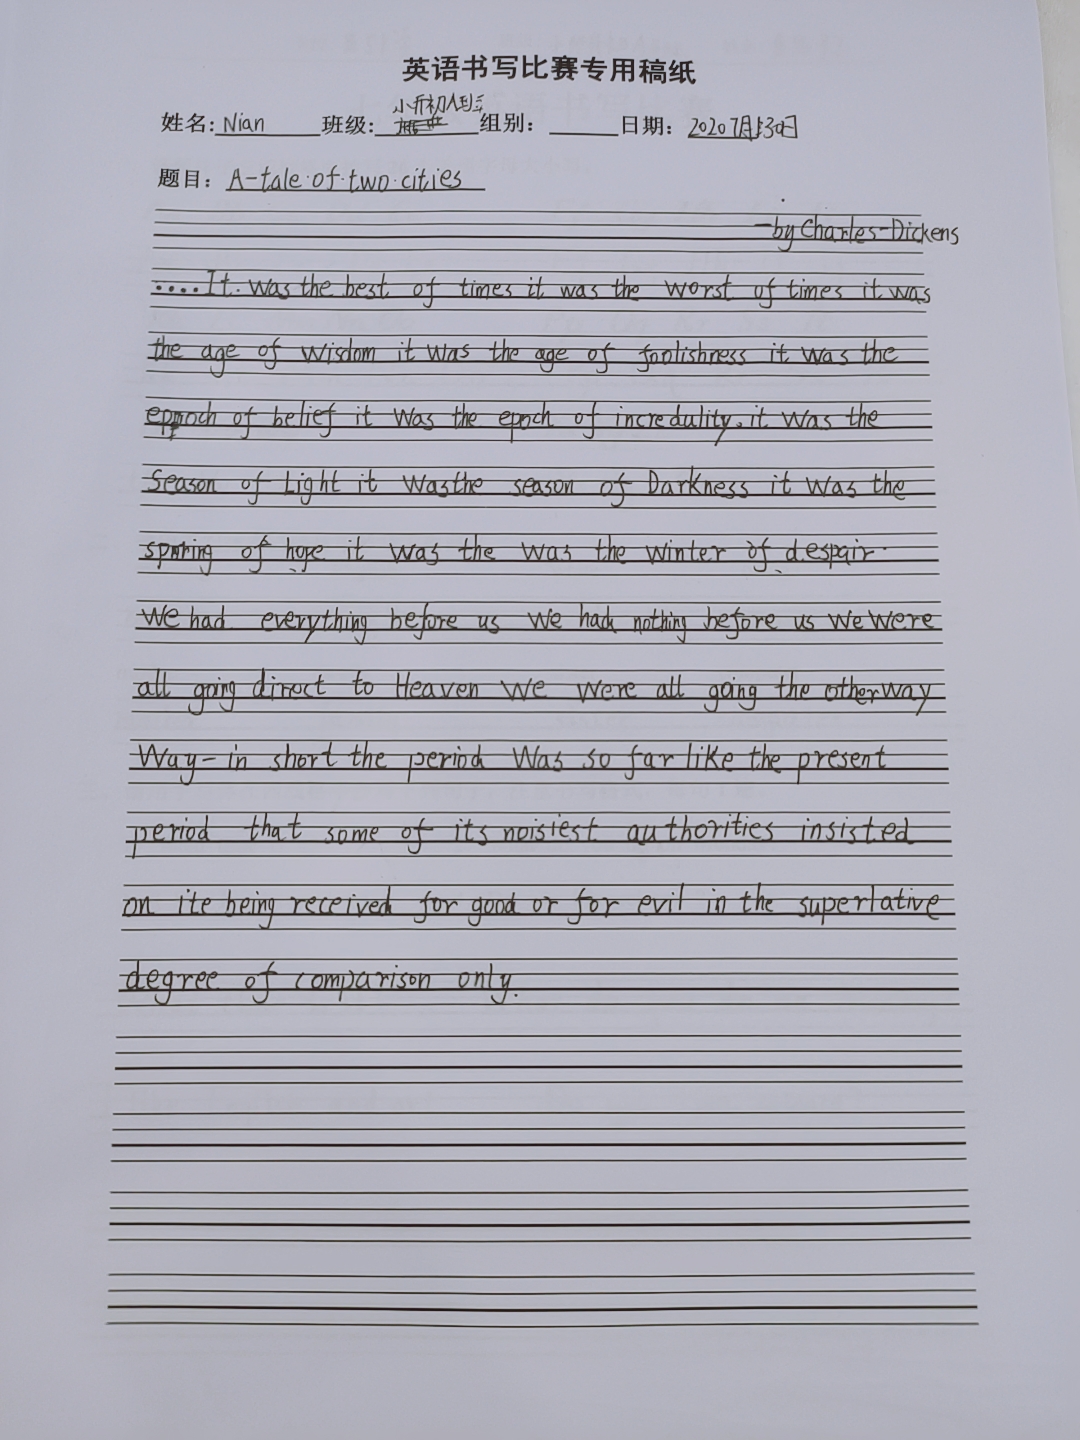 英语书写比赛专用稿纸
姓名: Nian 班级: 小升初 组别: 日期: 2020 7月30日
题目: A-tale·of·two·cities
-by Charles-Dickens
....It was the best of times it was the worst of times it was
the age of wisdom it was the age of foolishness it was the
eppnoch of belief it was the epoch of incredulity. it was the
Season of Light it Wasthe season of Darkness it was the
sparing of hope it was the was the winter of despair.
We had everything before us we had nothing before us we were
all going direct to Heaven we were all going the other way
Way- in short the period was so far like the present
period that some of its noisiest authorities insisted
on ite being received for good or for evil in the superlative
degree of comparison only.